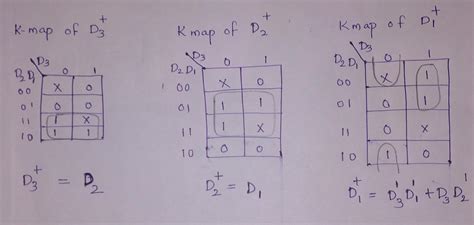 K-map of D₃⁺
D₃
D₂D₁ 0 1
00 X 0
01 0 0
11 1 X
10 1 1
D₃⁺ = D₂
K map of D₂⁺
D₃
D₂D₁ 0 1
00 X 0
01 1 1
11 1 X
10 0 0
D₂⁺ = D₁
K map of D₁⁺
D₃
D₂D₁ 0 1
00 X 1
01 0 1
11 0 X
10 1 0
D₁⁺ = D₃'D₁' + D₃D₂'